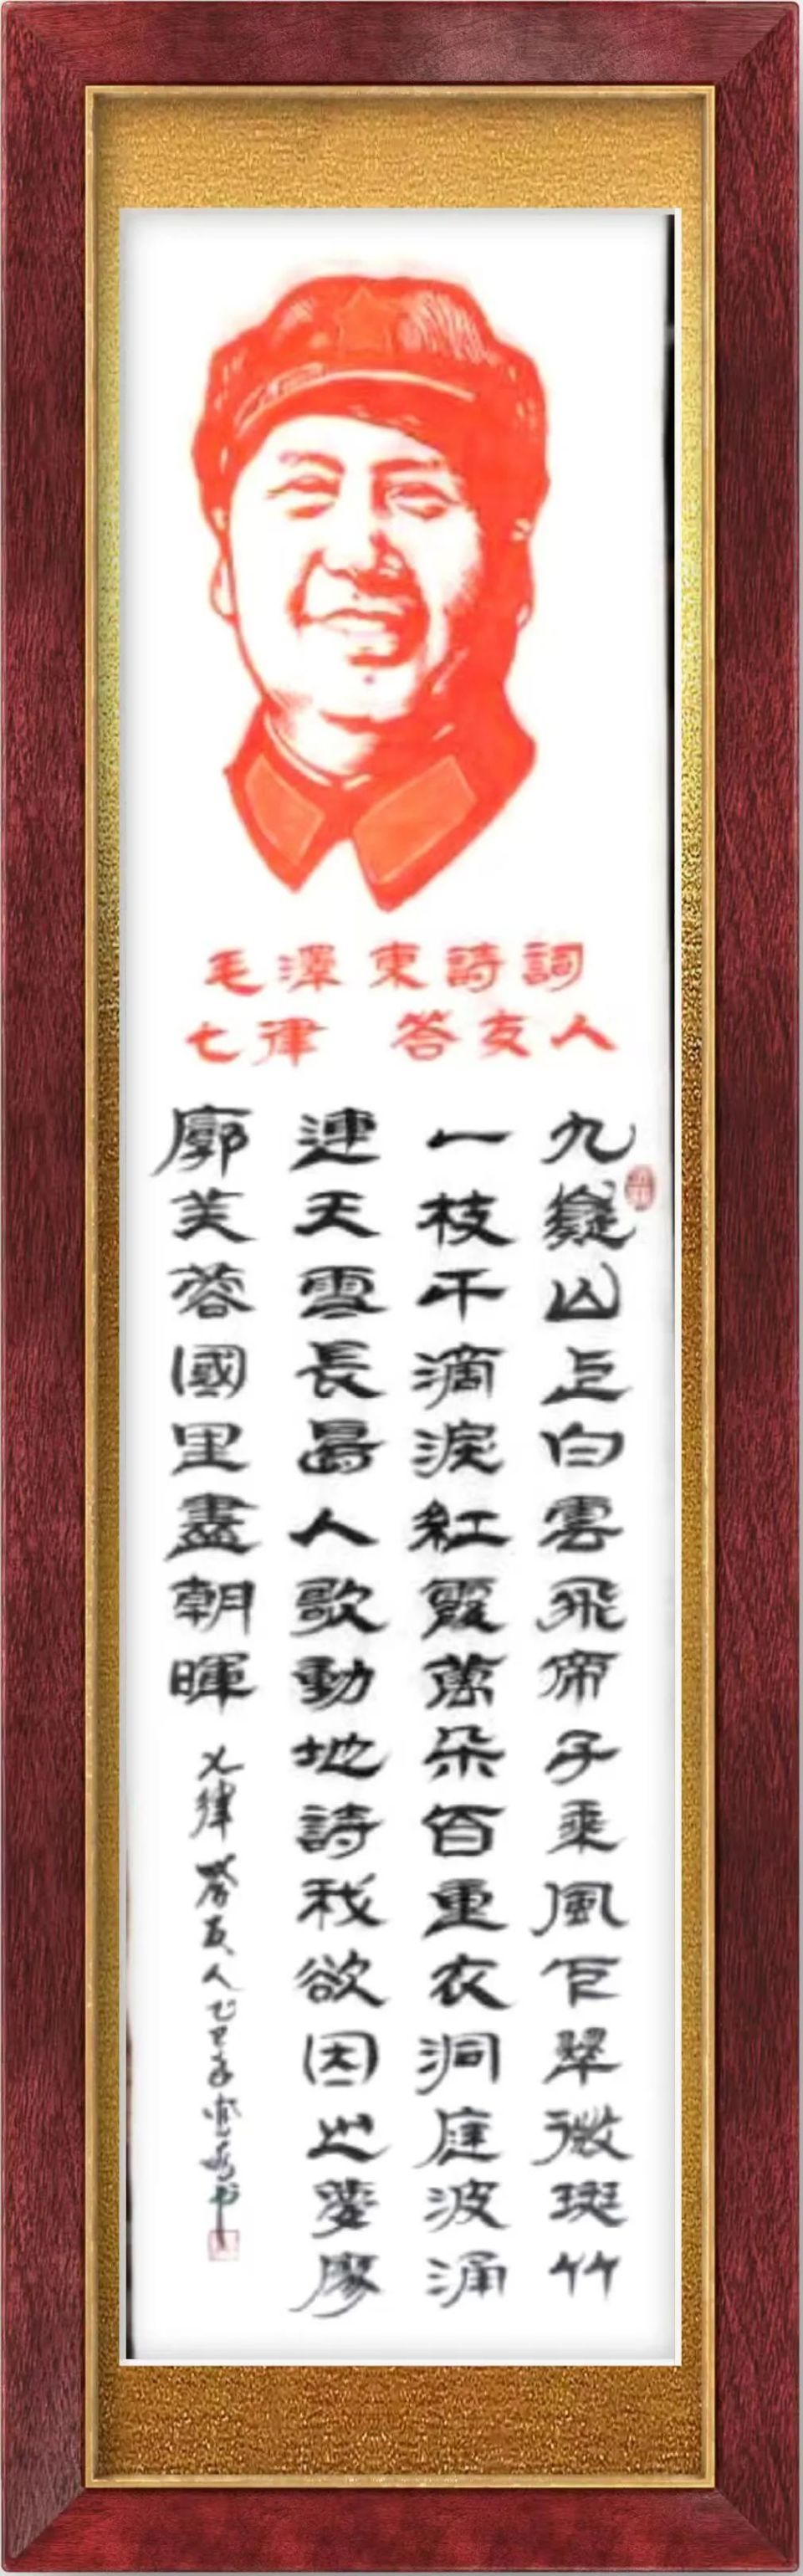 毛澤東詩詞
七律 答友人
九嶷山上白雲飛帝子乘風下翠微斑竹
一枝千滴淚紅霞萬朵百重衣洞庭波涌
連天雪長島人歌動地詩我欲因之夢廖
廓芙蓉國里盡朝暉
七律 答友人乙巳年書